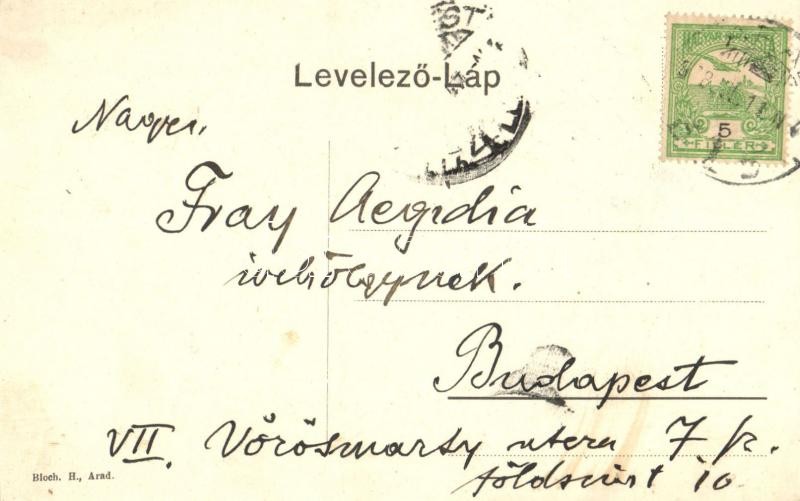 Levelező-Lap
MAGYAR
5
FILLÉR
Fray Aegidia
urhölgynek.
Budapest
VII. Vörösmarty utcza 7 sz.
földszint 10
Bloch. H., Arad.